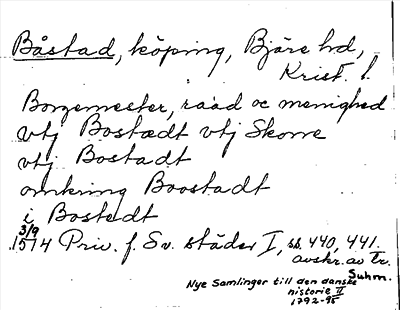 Båstad, köping, Bjäre hd,
Krist. l.
Borgemester, raad oc menighed
vtj Bostædt vtj Skone
vtj Bostadt
omkring Boostadt
i Bostedt
3/9
1574 Priv. f. Sv. städer I, ss. 440, 441.
avskr. av tr.
Suhm.
Nye Samlinger till den danske
historie II
1792-95